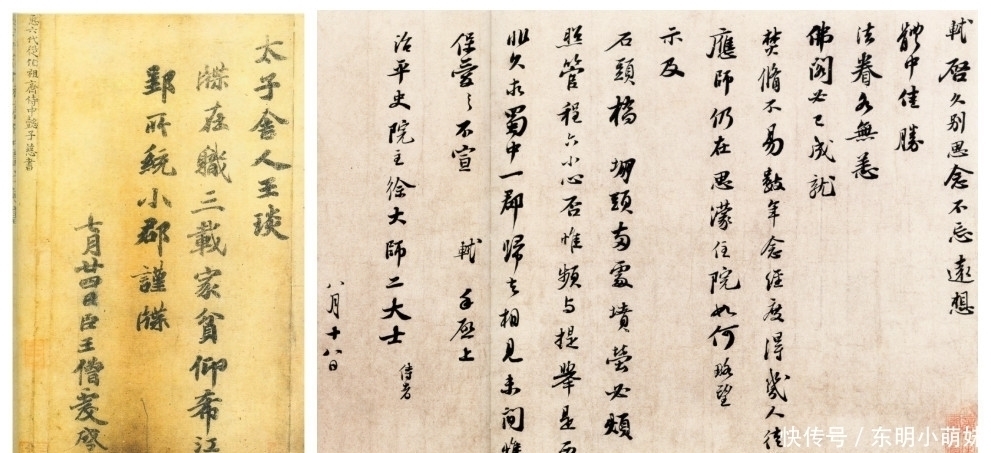 太子舍人王琰
牒在職三載家貧仰希江
郢所統小郡謹牒
七月廿四日臣王僧虔啓
臣六代從伯祖齊侍中懿子慈書
軾啓久别思念不忘遠想
體中佳勝
法眷各無恙
佛閣必已成就
焚脩不易數年念經度得幾人徒
應師仍在思濛住院如何略望
示及
石頭橋 堋頭兩處墳塋必煩
照管程六小心否惟頻与提舉是
非久求蜀中一郡歸去相見未間惟
保愛之不宣 軾 手啓上
治平史院主徐大師二大士 侍者
八月十八日
快传号 / 东明小萌妹